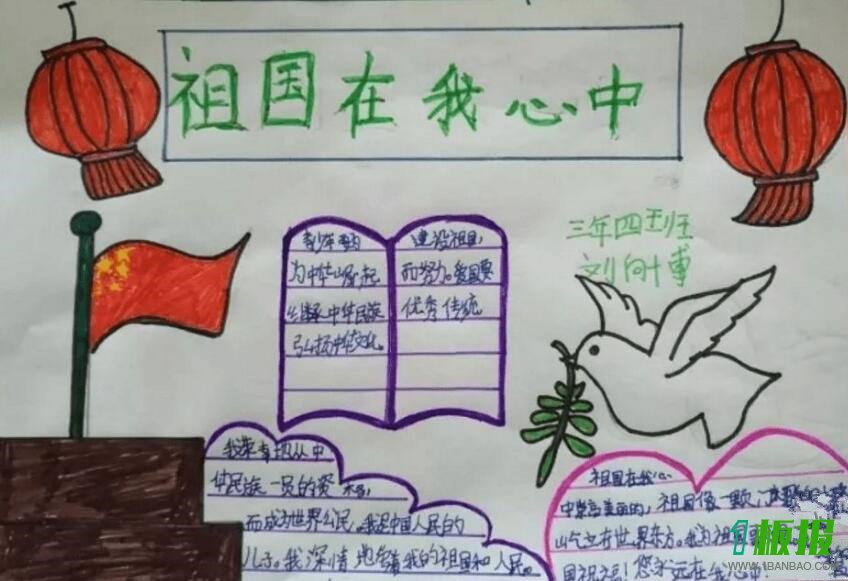 祖国在我心中
三年四班
刘
青少年要为
为中华崛起
继承中华民族
弘扬中华文化。
建设祖国,
而努力。爱国要
优秀传统
我来有现从中
华民族一员的资
而成为世界公民。我是中国人民的
儿子。我深情地
我的祖国和人民。
祖国在我心
中
美丽的,祖国像一颗
山气立在世界东方。我为祖国
国祝福!您永远在我心中
1板报
WWW.1BANBAO.COM